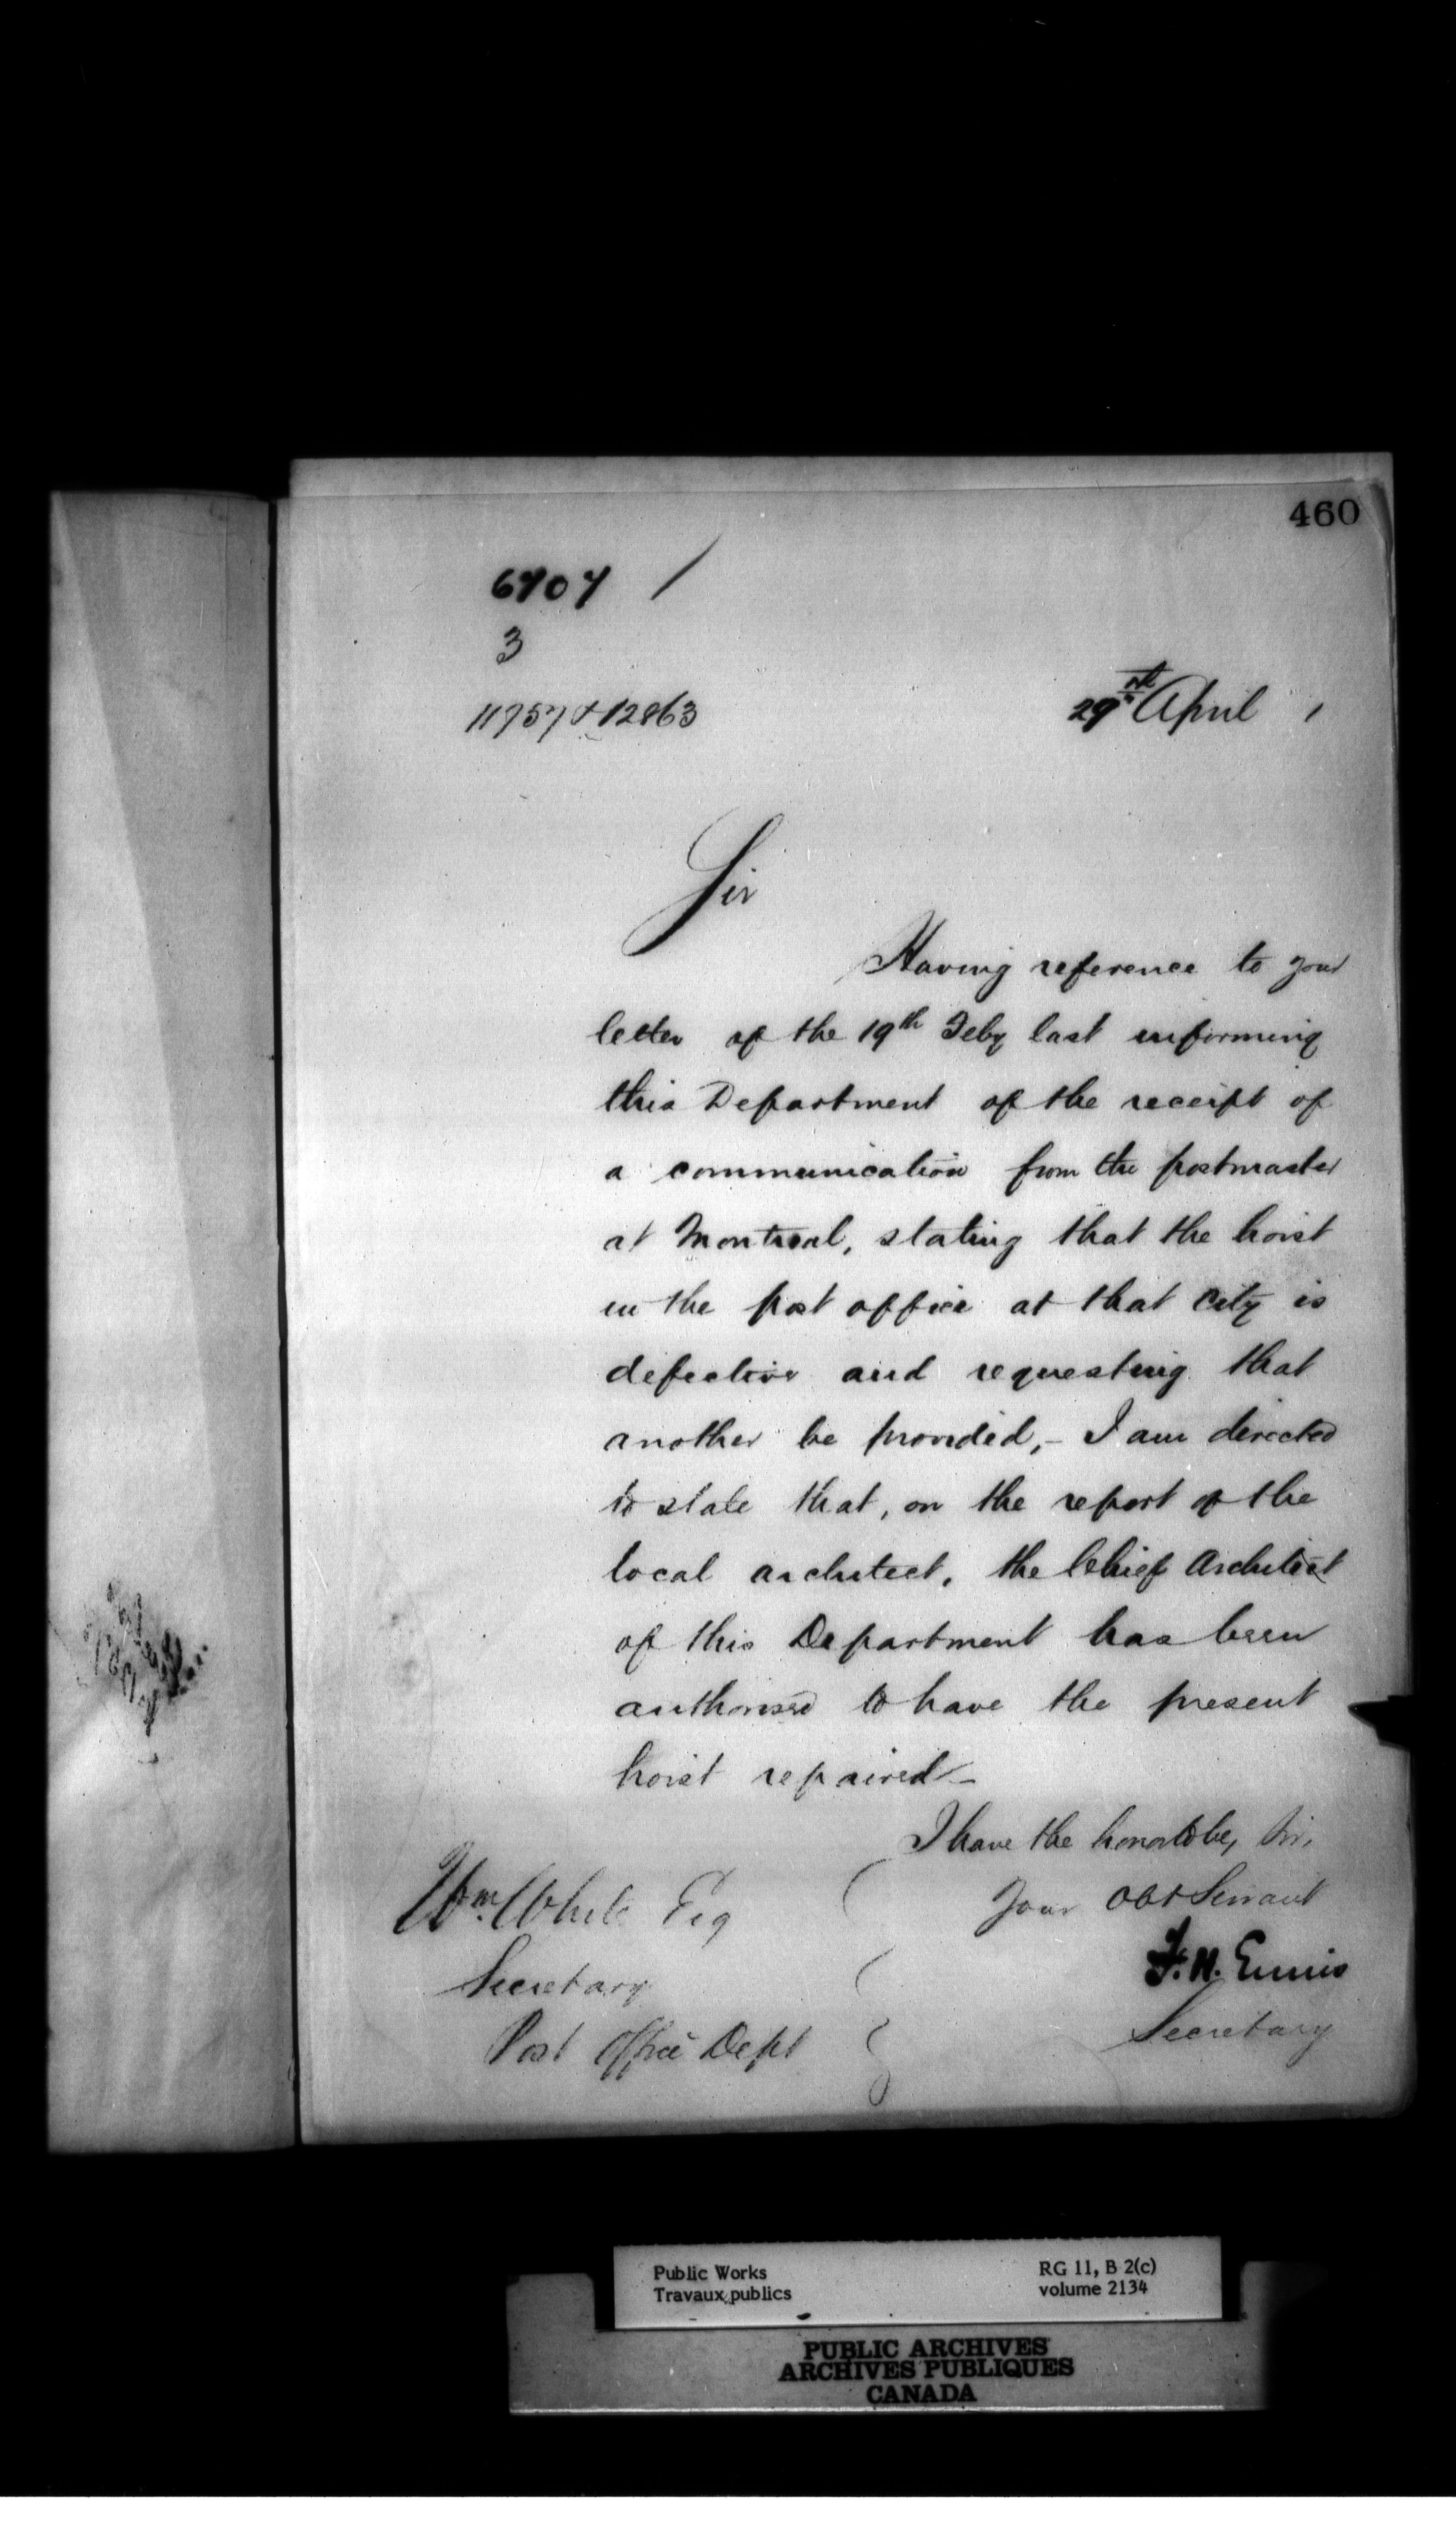 460
6707 /
3
11957 & 12863
29th April 1
Sir
Having reference to your
letter of the 19th Feby last informing
this Department of the receipt of
a communication from the postmaster
at Montreal, stating that the hoist
in the post office at that City is
defective and requesting that
another be provided,- I am directed
to state that, on the report of the
local architect, the Chief Architect
of this Department has been
authorised to have the present
hoist repaired-
I have the honor to be, Sir,
Your Obt Servant
F. H. Ennis
Secretary
Wm. White Esq
Secretary
Post Office Dept
Public Works
Travaux publics
RG 11, B 2(c)
volume 2134
PUBLIC ARCHIVES
ARCHIVES PUBLIQUES
CANADA